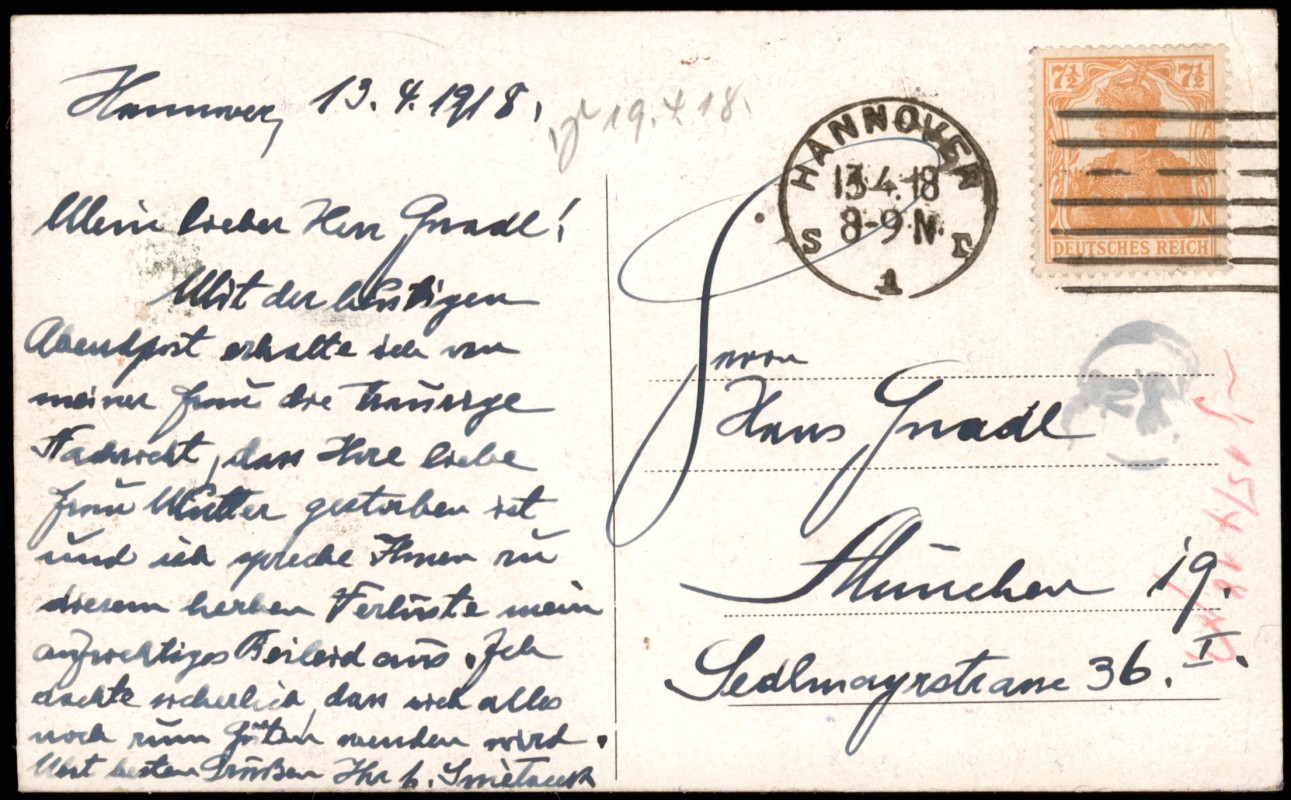 Hannover, 13.4.1918.
19.4.18.
Mein lieber Herr Gnadl!
Mit der heutigen
Abendpost erhalte ich von
meiner Frau die traurige
Nachricht, dass Ihre liebe
Frau Mutter gestorben ist
und ich spreche Ihnen zu
diesem herben Verluste mein
aufrichtiges Beileid aus. Ich
dachte sicherlich, dass sich alles
noch zum Guten wenden wird.
Mit besten Grüßen Ihr
HANNOVER
13.4.18
8-9 N.
S
1
7½ 7½
DEUTSCHES REICH
Herrn
Hans Gnadl
München 19.
Sedlmayrstrasse 36. I.